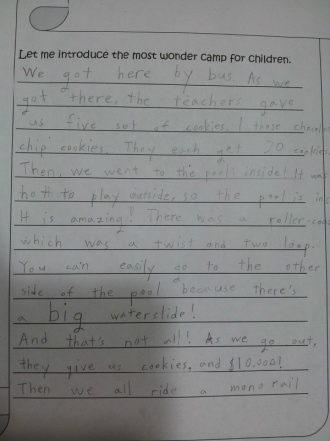 Let me introduce the most wonder camp for children.
We got here by bus. As we
got there, the teachers gave
us five sort of cookies. I chose chocolat
chip cookies. They each get 20 cookies
Then, we went to the pool inside! It was
hot to play outside, so the pool is ins
It is amazing! There was a roller-coas
which was a twist and two loop.
You can easily go to the other
side of the pool because there's
a big waterslide!
And that's not all! As we go out,
they give us cookies, and $10,000!
Then we all ride a mono rail